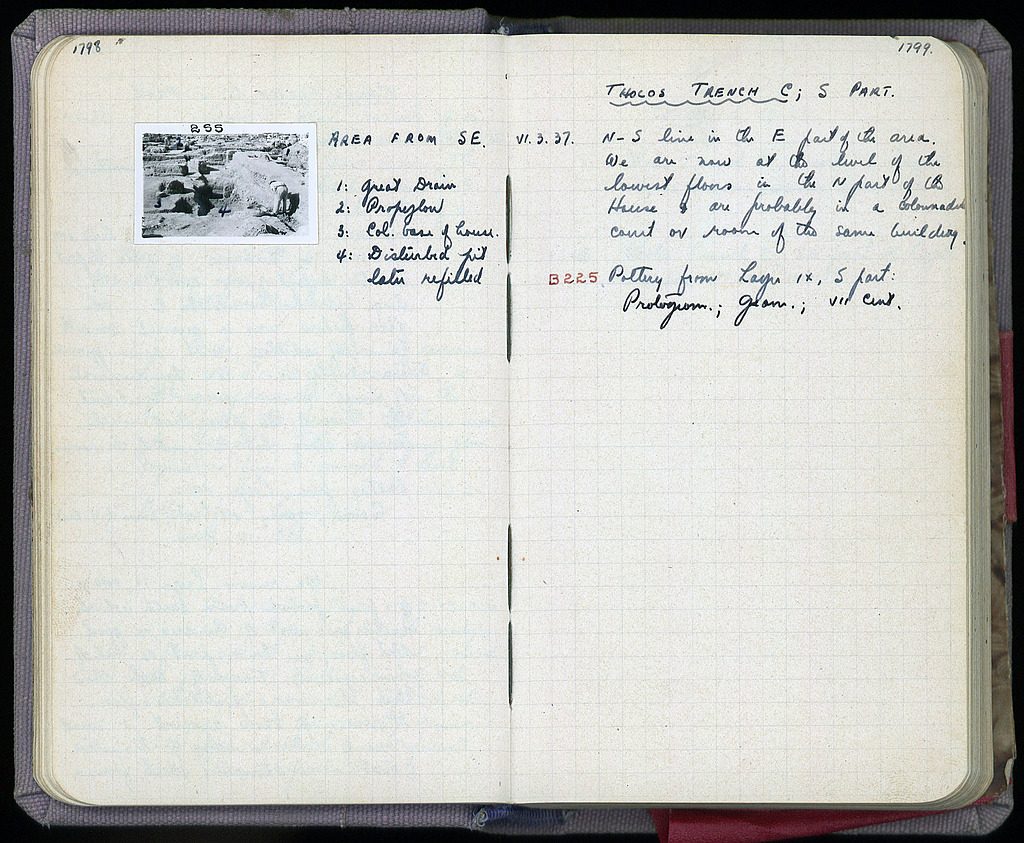 1798
255
AREA FROM SE.
1: Great Drain
2: Propylon
3: Col. base of house.
4: Disturbed pit
later refilled
4
1799.
THOLOS TRENCH C; S PART.
VI.3.37. N-S line in the E part of the area.
We are now at the level of the
lowest floors in the N part of the
House & are probably in a colonnaded
court or room of the same building.
B225 Pottery from Layer IX, S part:
Protogeom.; Geom.; VII cent.